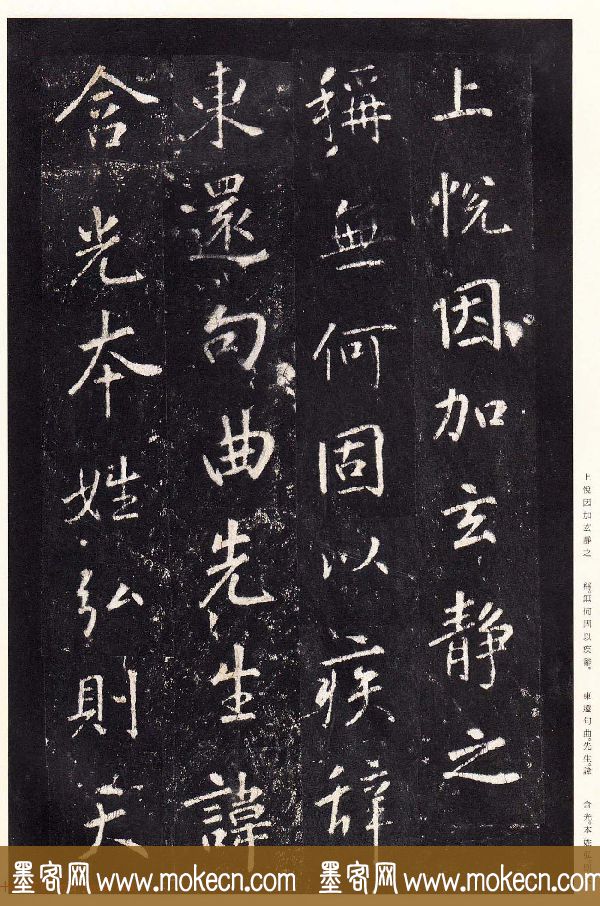 上悅因加玄靜之
稱無何固以疾辞
東還句曲先生諱
含光本姓弘則天
上悅因加玄靜之　稱。無何固以疾辭。　東還句曲。先生諱　含光。本姓弘
墨客网 www.mokecn.com 墨客网 www.mokecn.com